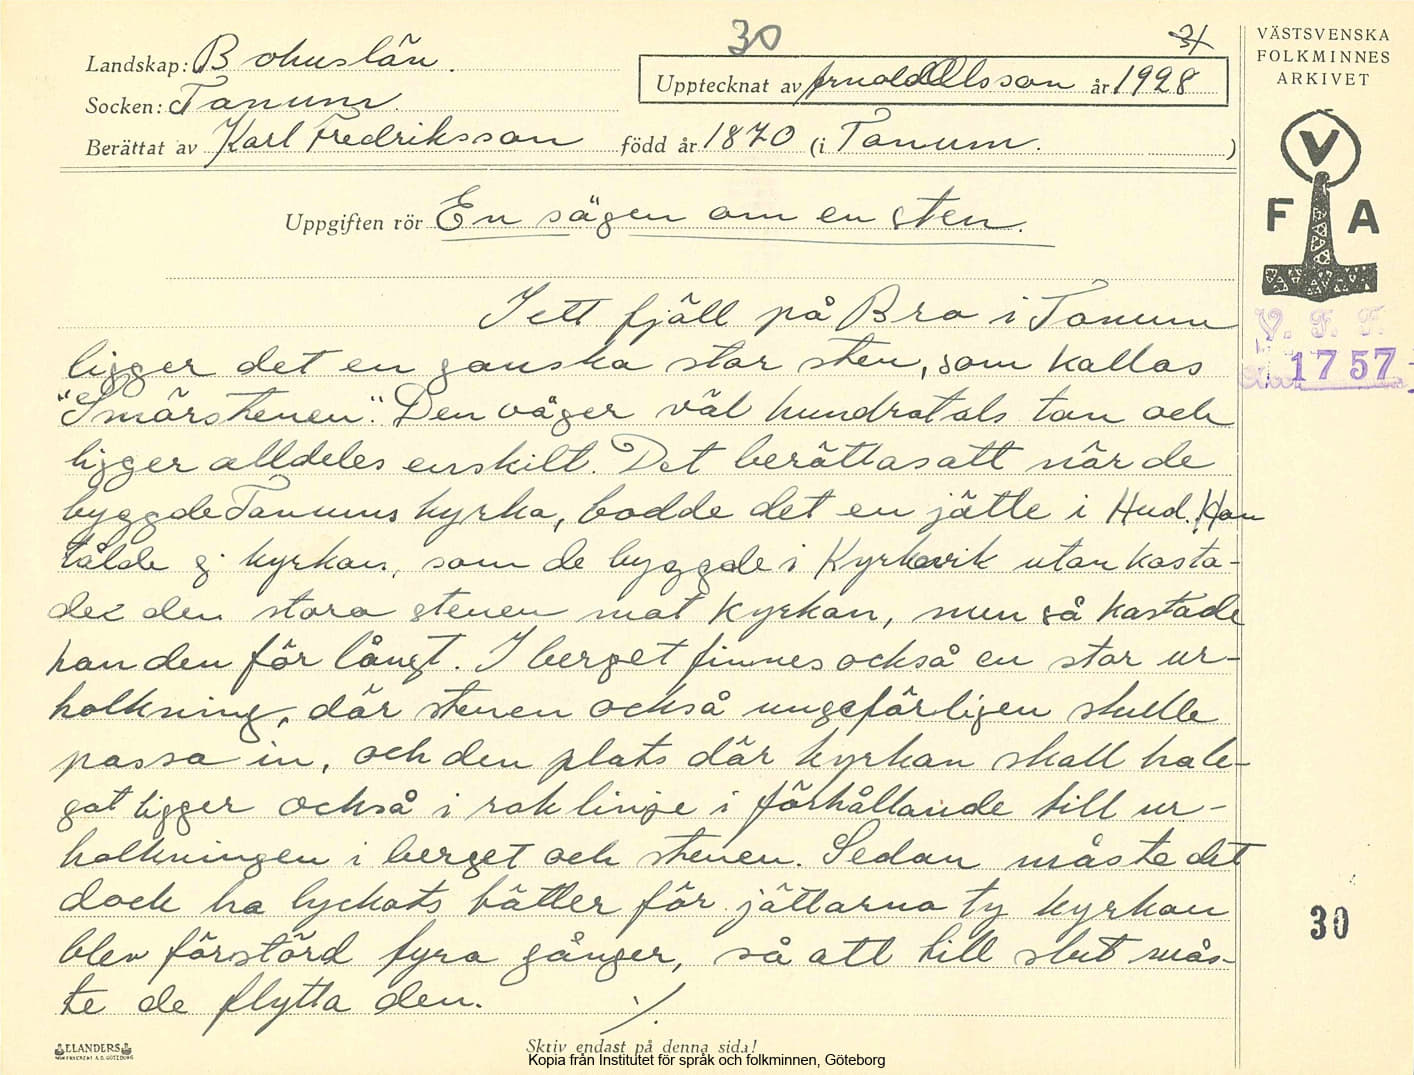 30
31
VÄSTSVENSKA
FOLKMINNES
ARKIVET
Landskap: Bohuslän.
Upptecknat av Arnold Olsson år 1928
Socken: Tanum.
Berättat av Karl Fredriksson född år 1870 (i Tanum. )
V
F A
Uppgiften rör En sägen om en sten.
I ett fjäll på Bro i Tanum
V. F. F.
ligger det en ganska stor sten, som kallas
1757
"Smörstenen". Den väger väl hundratals ton och
ligger alldeles enskilt. Det berättas att när de
byggde Tanums kyrka, bodde det en jätte i Hud. Han
tålde ej kyrkan, som de byggde i Kyrkovik utan kasta-
de den stora stenen mot kyrkan, men så kastade
han den för långt. I berget finnes också en stor ur-
holkning, där stenen också ungefärligen skulle
passa in, och den plats där kyrkan skall ha le-
gat ligger också i rak linje i förhållande till ur-
holkningen i berget och stenen. Sedan måste det
dock ha lyckats bättre för jättarna ty kyrkan
30
blev förstörd fyra gånger, så att till slut mås-
te de flytta den. ./.
ELANDERS
Skriv endast på denna sida!
Kopia från Institutet för språk och folkminnen, Göteborg